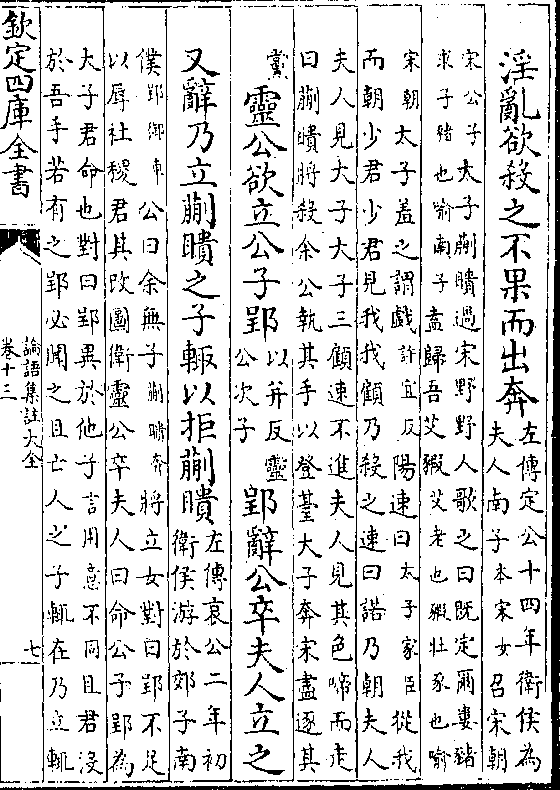 淫亂欲殺之不果而出奔
左傳定公十四年衛侯為
夫人南子本宋女召宋朝
宋公子太子蒯瞶過宋野野人歌之曰既定爾婁豬
求子豬也喻南子盍歸吾艾豭艾老也豭牡豕也喻
宋朝太子羞之謂戲許宜反陽速曰太子家臣從我
而朝少君少君見我我顧乃殺之速曰諾乃朝夫人
夫人見大子大子三顧速不進夫人見其色啼而走
曰蒯瞶將殺余公執其手以登臺大子奔宋盡逐其
黨
靈公欲立公子郢
以井反靈
公次子
郢辭公卒夫人立之
又辭乃立蒯瞶之子輒以拒蒯瞶
左傳哀公二年初
衛侯游於郊子南
僕郢御車公曰余無子蒯瞶奔將立女對曰郢不足
以辱社稷君其改圖衛靈公卒夫人曰命公子郢為
大子君命也對曰郢異於他子言用意不同且君沒
於吾手若有之郢必聞之且亡人之子輒在乃立輒
欽定四庫全書
論語集註大全
卷十三
七